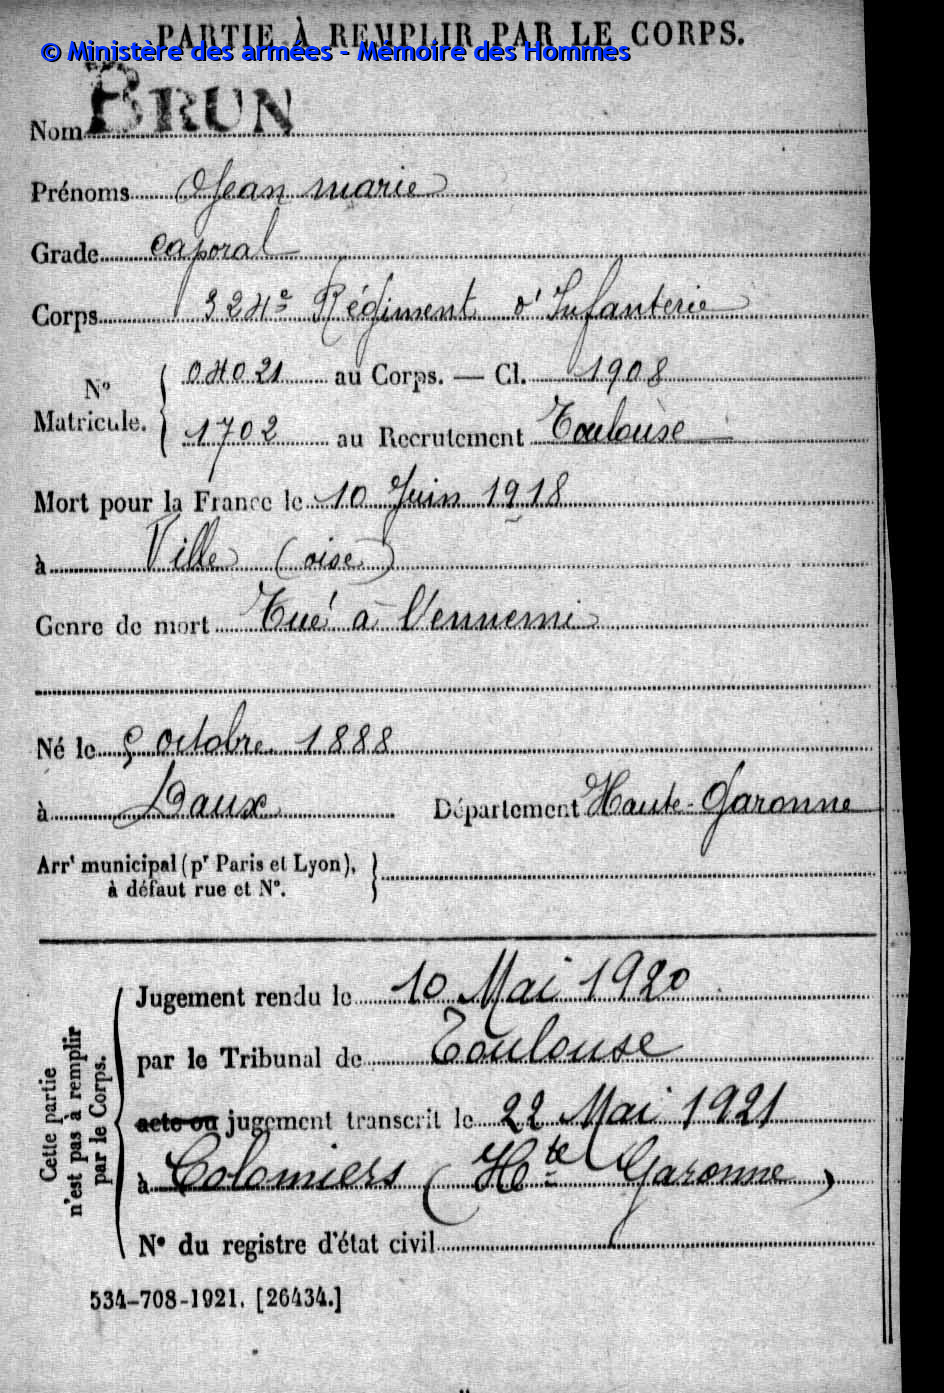 PARTIE À REMPLIR PAR LE CORPS.
© Ministère des armées - Mémoire des Hommes
Nom BRUN
Prénoms Jean marie
Grade caporal
Corps 324e Régiment d'Infanterie
No Matricule. 04021 au Corps. — Cl. 1908
1702 au Recrutement Toulouse
Mort pour la France le 10 Juin 1918
à Ville (oise)
Genre de mort Tué à l'ennemi
Né le 5 octobre 1888
à Daux Département Haute-Garonne
Arrt municipal (pr Paris et Lyon),
à défaut rue et No.
Cette partie
n'est pas à remplir
par le Corps.
Jugement rendu le 10 Mai 1920
par le Tribunal de Toulouse
acte ou jugement transcrit le 22 Mai 1921
à Colomiers (Hte Garonne)
No du registre d'état civil
534-708-1921. [26434.]